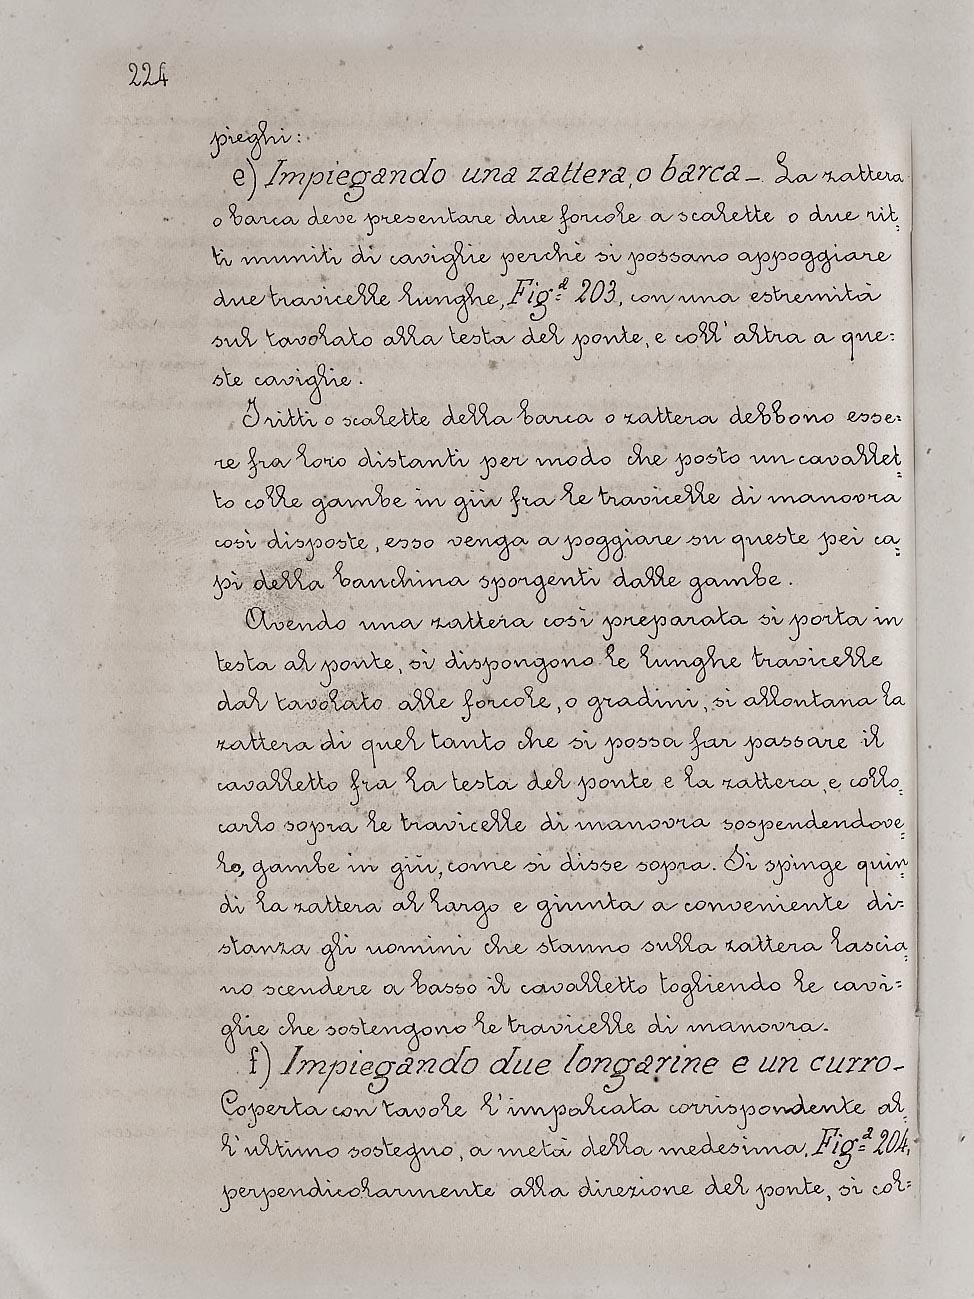 224
pieghi:
e) Impiegando una zattera, o barca — La zattera
o barca deve presentare due forcole a scalette o due rit=
ti muniti di caviglie perchè si possano appoggiare
due travicelle lunghe, Fig.ª 203, con una estremità
sul tavolato alla testa del ponte, e coll'altra a que=
ste caviglie.
I ritti o scalette della barca o zattera debbono esse=
re fra loro distanti per modo che posto un cavallet=
to colle gambe in giù fra le travicelle di manovra
così disposte, esso venga a poggiare su queste pei ca=
pi della banchina sporgenti dalle gambe.
Avendo una zattera così preparata si porta in
testa al ponte, si dispongono le lunghe travicelle
dal tavolato alle forcole, o gradini, si allontana la
zattera di quel tanto che si possa far passare il
cavalletto fra la testa del ponte e la zattera, e collo=
carlo sopra le travicelle di manovra sospendendove=
lo, gambe in giù, come si disse sopra. Si spinge quin=
di la zattera al largo e giunta a conveniente di=
stanza gli uomini che stanno sulla zattera lascia=
no scendere a basso il cavalletto togliendo le cavi=
glie che sostengono le travicelle di manovra.
f) Impiegando due longarine e un curro —
Coperta con tavole l'impalcata corrispondente al=
l'ultimo sostegno, a metà della medesima, Fig.ª 204,
perpendicolarmente alla direzione del ponte, si col=